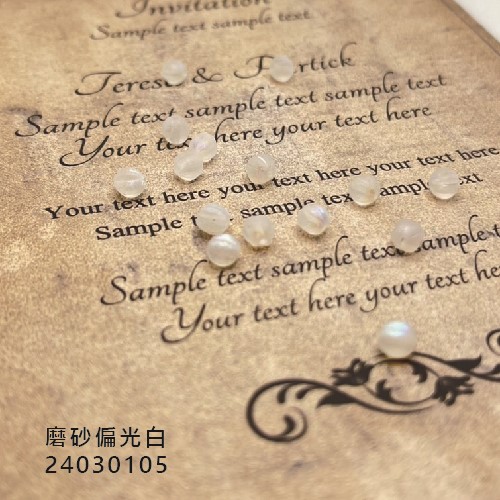 Invitation
Sample sample text
Teresa & Partick
Sample text sample text sample text
Your text here your text here
Your text here your text here your text here
Sample text sample text sample text
Sample text sample text sample text
Your text here your text here
磨砂偏光白
24030105